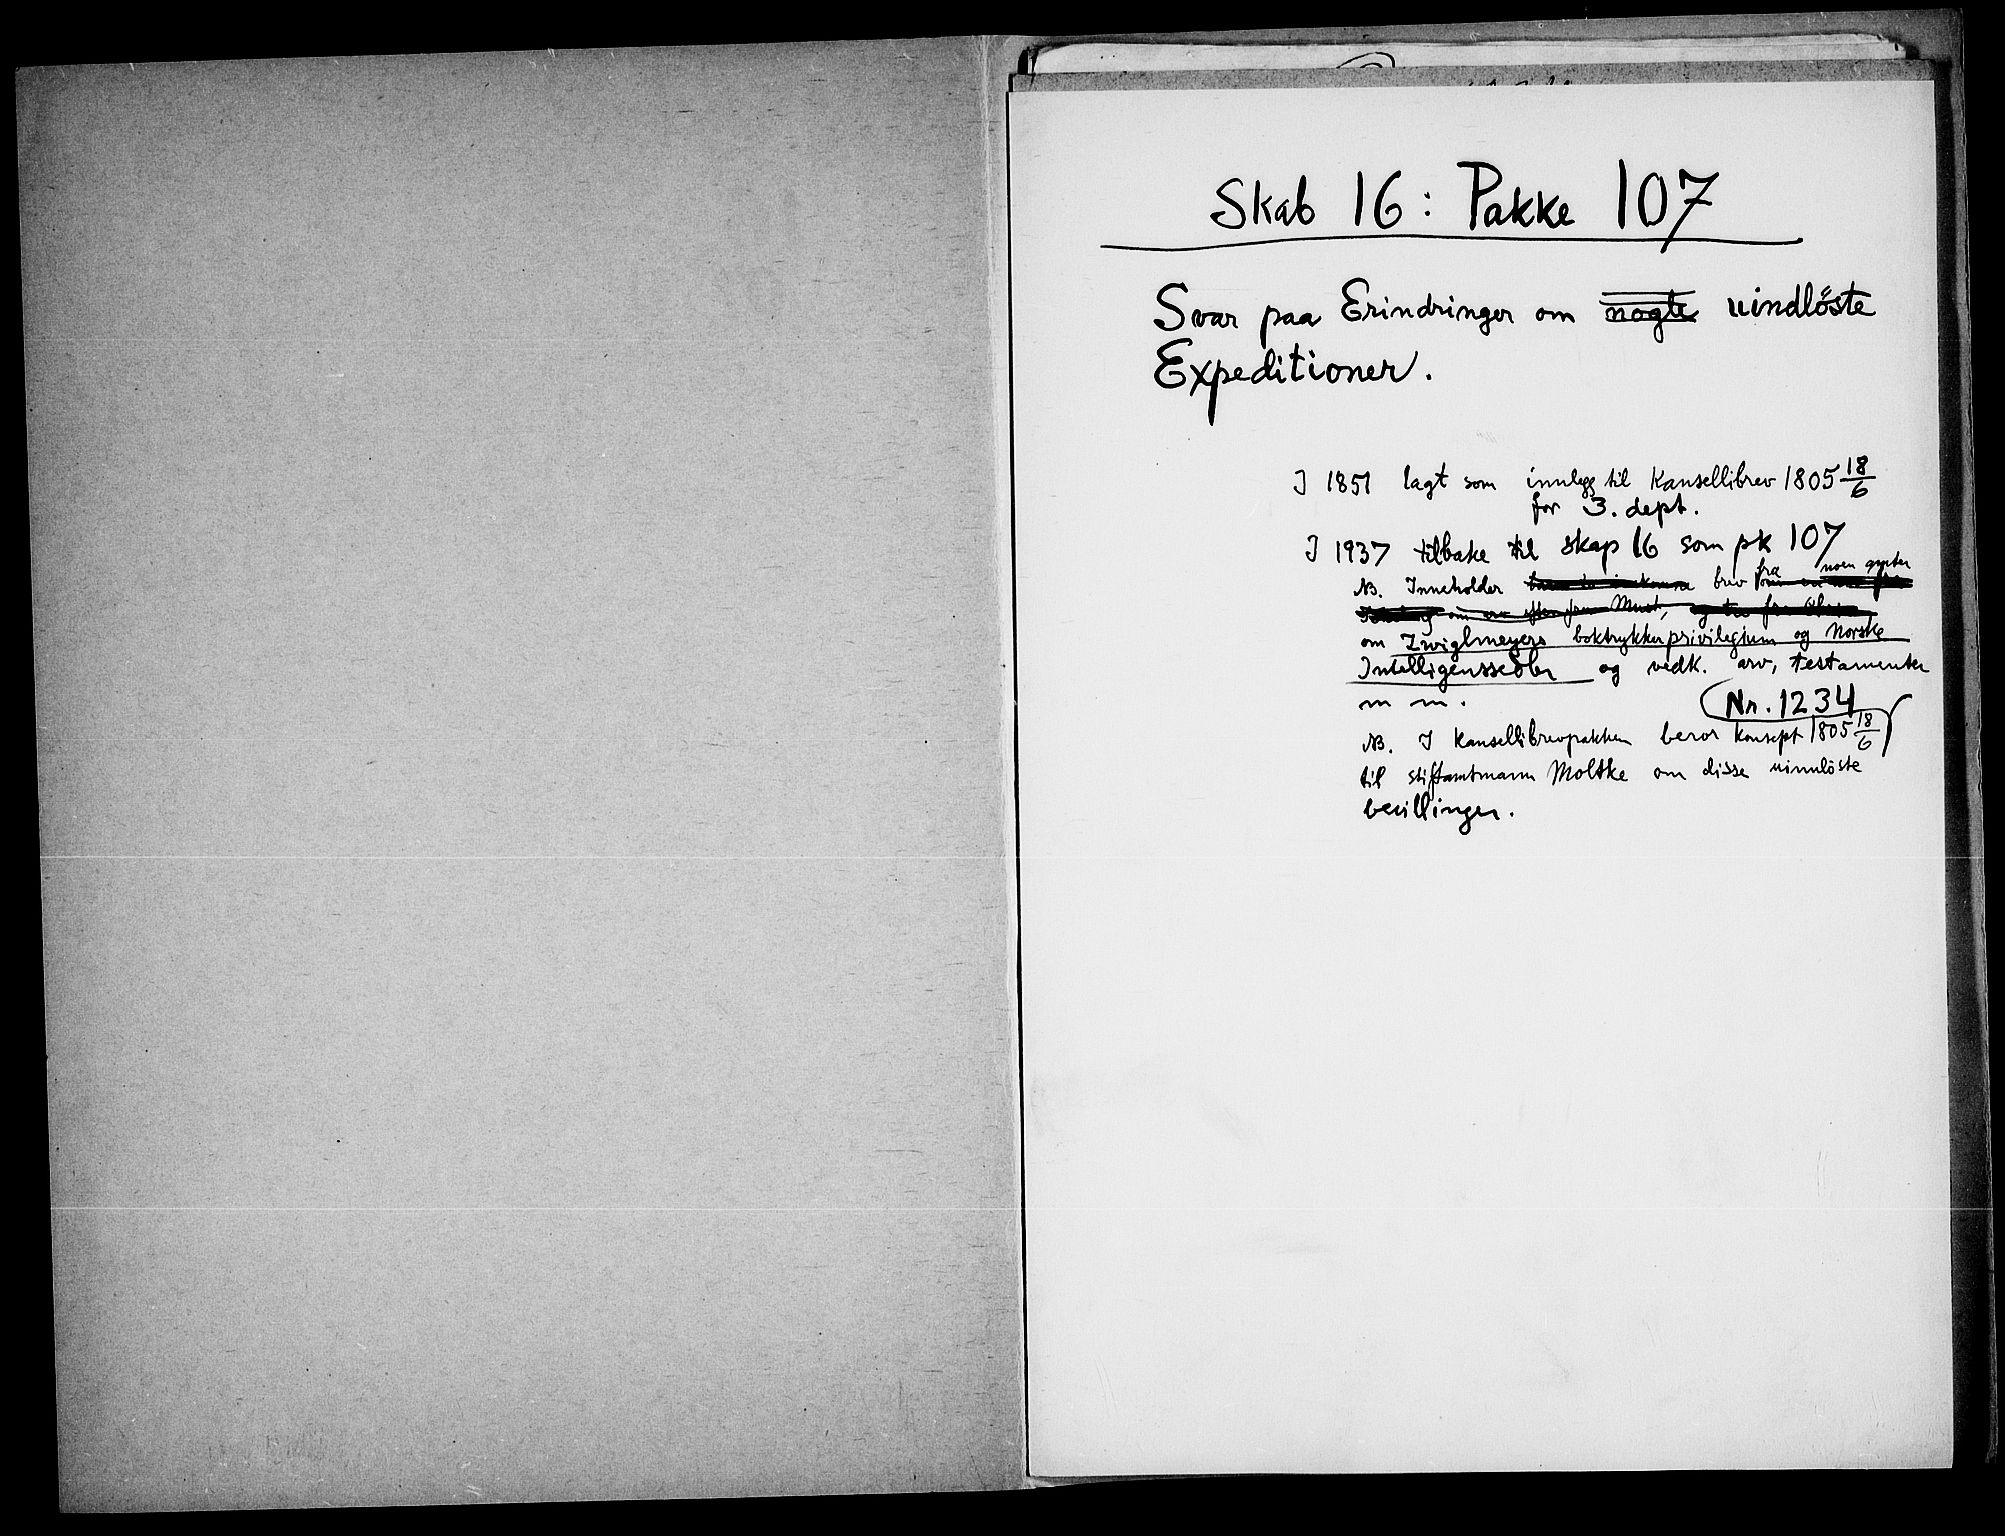 Skab 16: Pakke 107
Svar paa Erindringer om nogle uindlöste
Expeditioner.
I 1851 lagt som innlegg til Kansellibrev 1805 18/6
for 3. dept.
I 1937 tilbake til skap 16 som pk 107
NB. Inneholder brev fra noen
Must,
om Zwiglmeyers boktrykkerprivilegium og Norske
Intelligenssedler og vedk. arv, testamenter
m m.
Nr. 1234
NB. I Kansellibrevpakken beror konsept 1805 18/6
til stiftamtmann Moltke om disse uinnlöste
bevillinger.